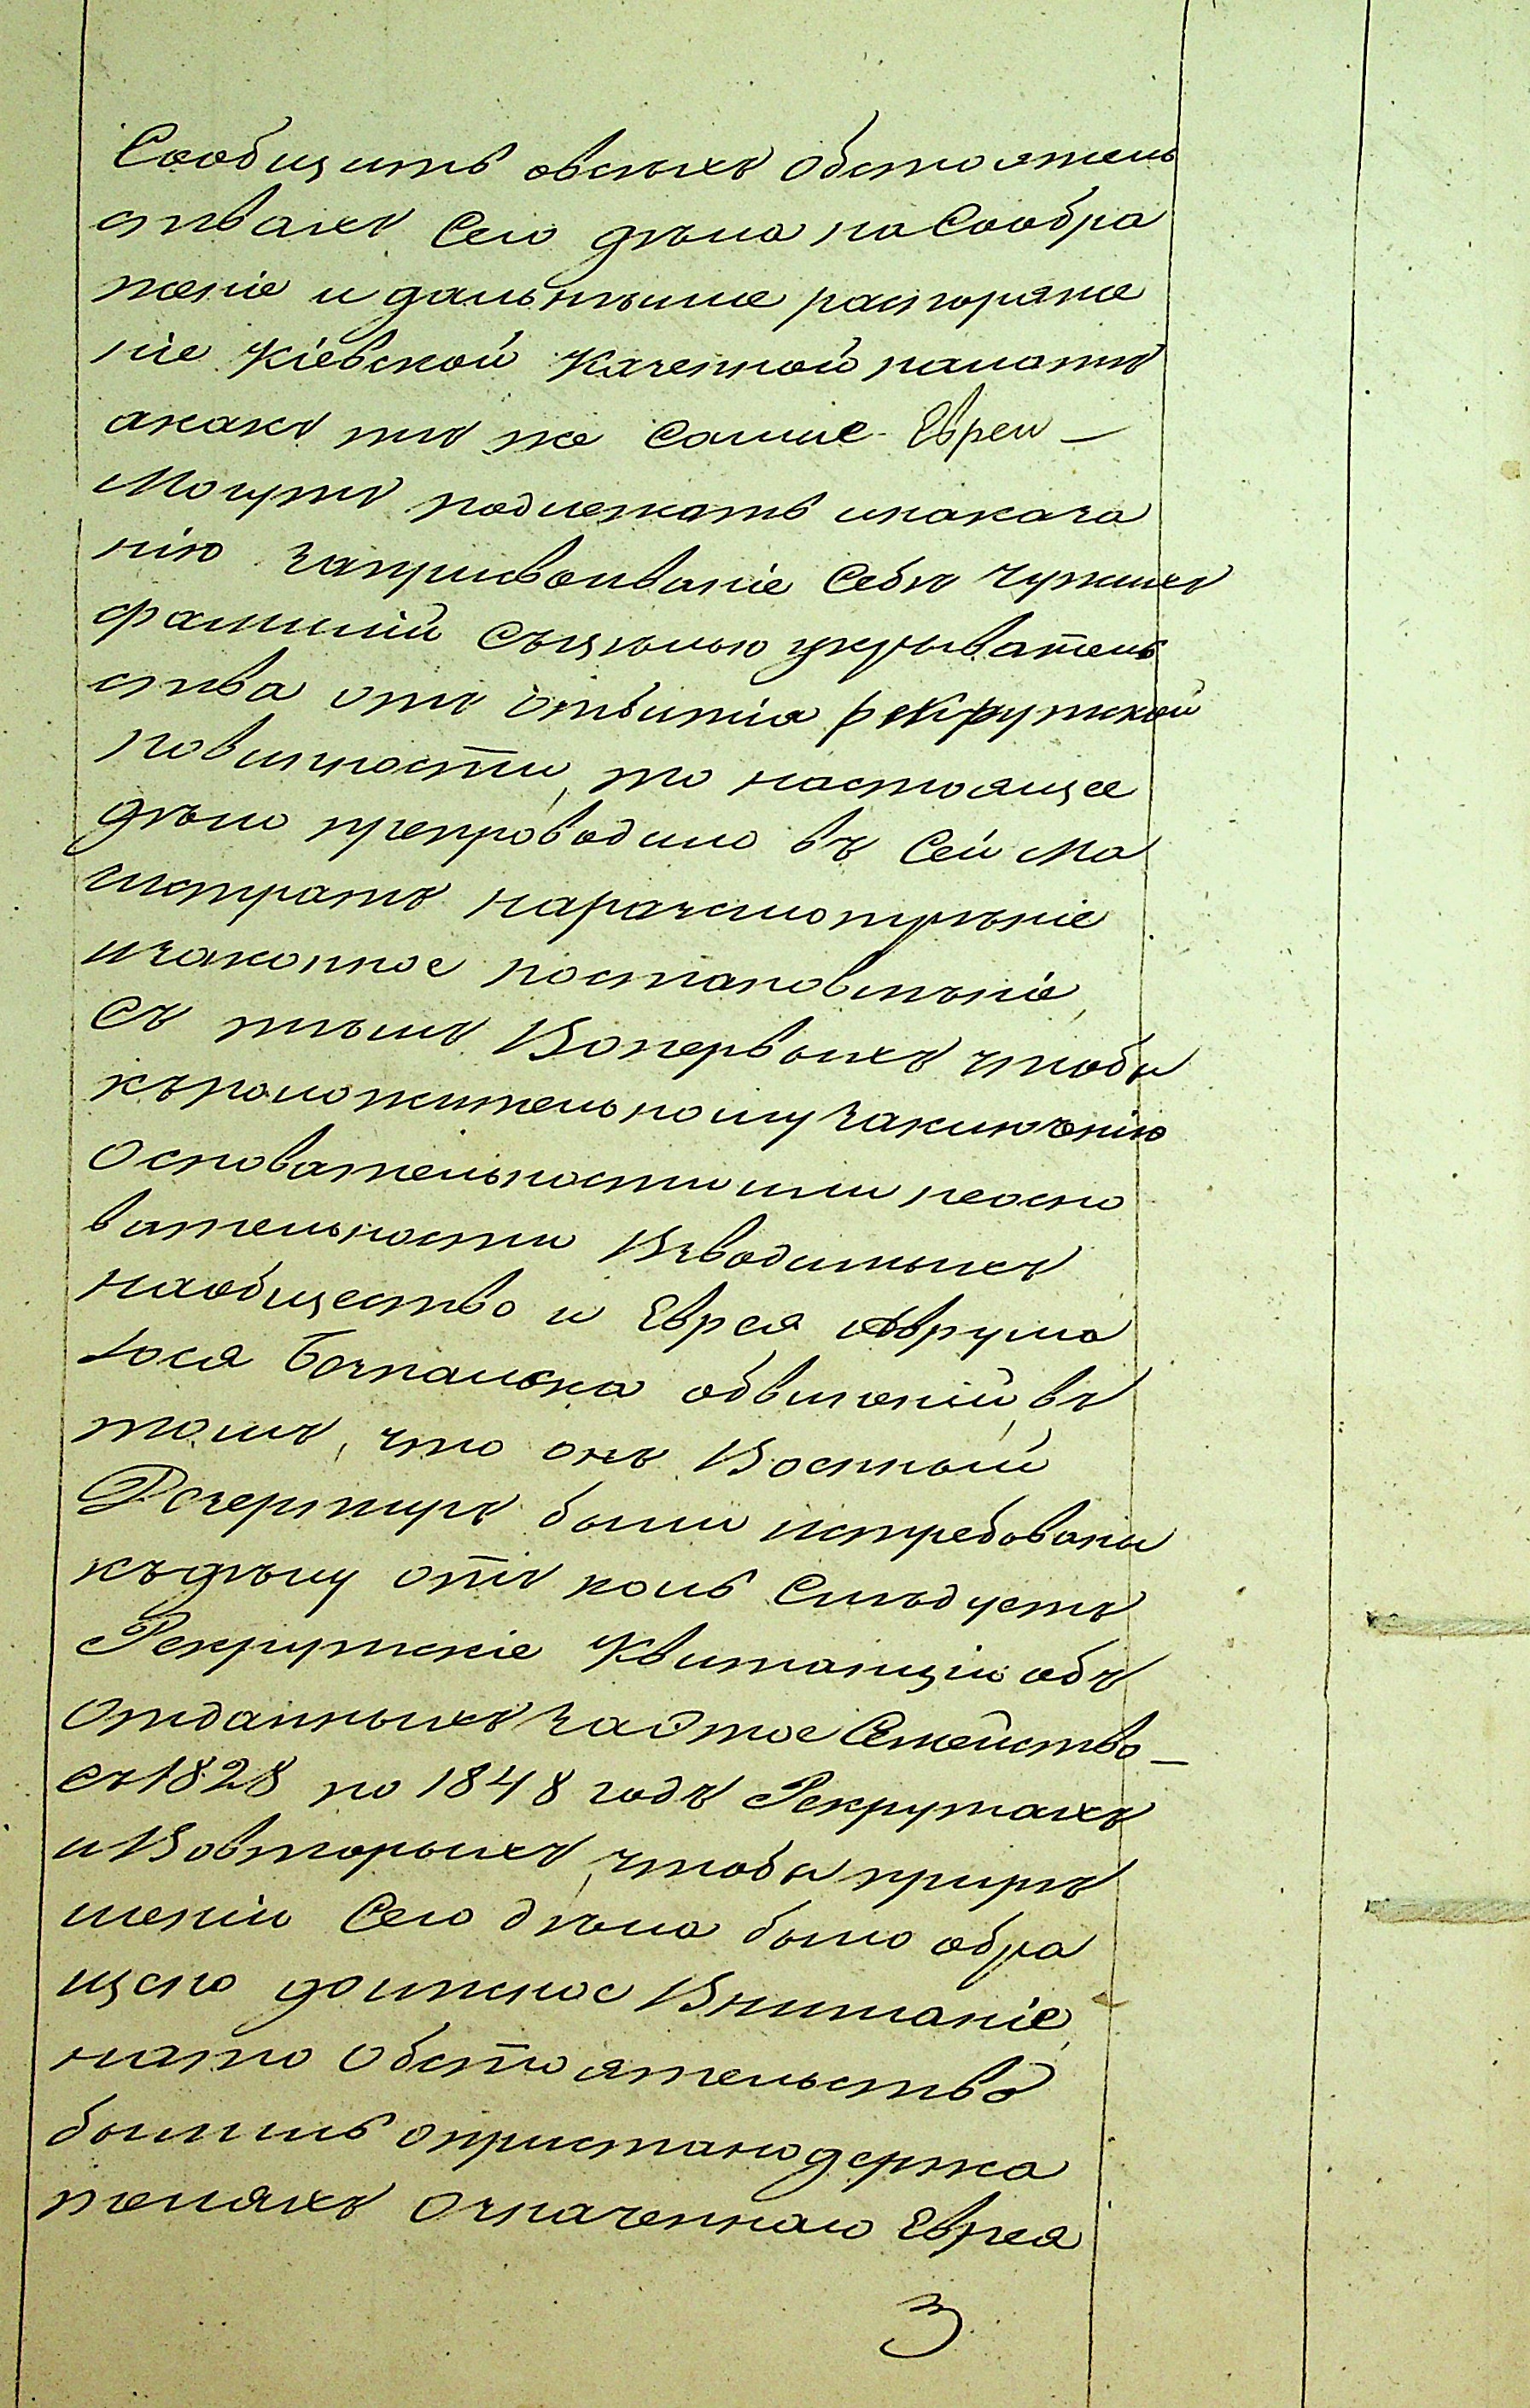 Сообщить овсѣхъ обстоятель
ствахъ сего дѣла на Сообра
женіе и дальнѣйшее распоряже
ніе Кіевской Казенной палатѣ
акакъ тѣ же самые Евреи —
Могутъ подлежать инаказа
нію заприсвоиваніе себѣ чужихъ
фамилій съцѣлью укрыватель
ства отъ отбытія рекрутской
повинности, то настоящее
дѣло препроводило въ Сей Ма
гистратъ наразсмотрѣніе
изаконное постановлѣніе,
съ тѣмъ Вопервыхъ чтобы
къположительному заключенію
Основательности или неосно
вательности Взводимыхъ
наобщество и Еврея Аврума
Іося Бочпальска обвиненій, въ
томъ, что онъ Военный
Дезертиръ были истребованы
къдѣлу отъ коль Слѣдуетъ
Рекрутскіе Квитанціи объ
отданныхъ заЭтое Семейство —
съ1828 по 1848 годъ Рекрутахъ
иВовторыхъ, чтобы прирѣ
шеніи Сего дѣла было обра
щено должное Вниманіе,
нато обстоятельство
былиль опристанодержа
теляхъ означеннаго Еврея
3